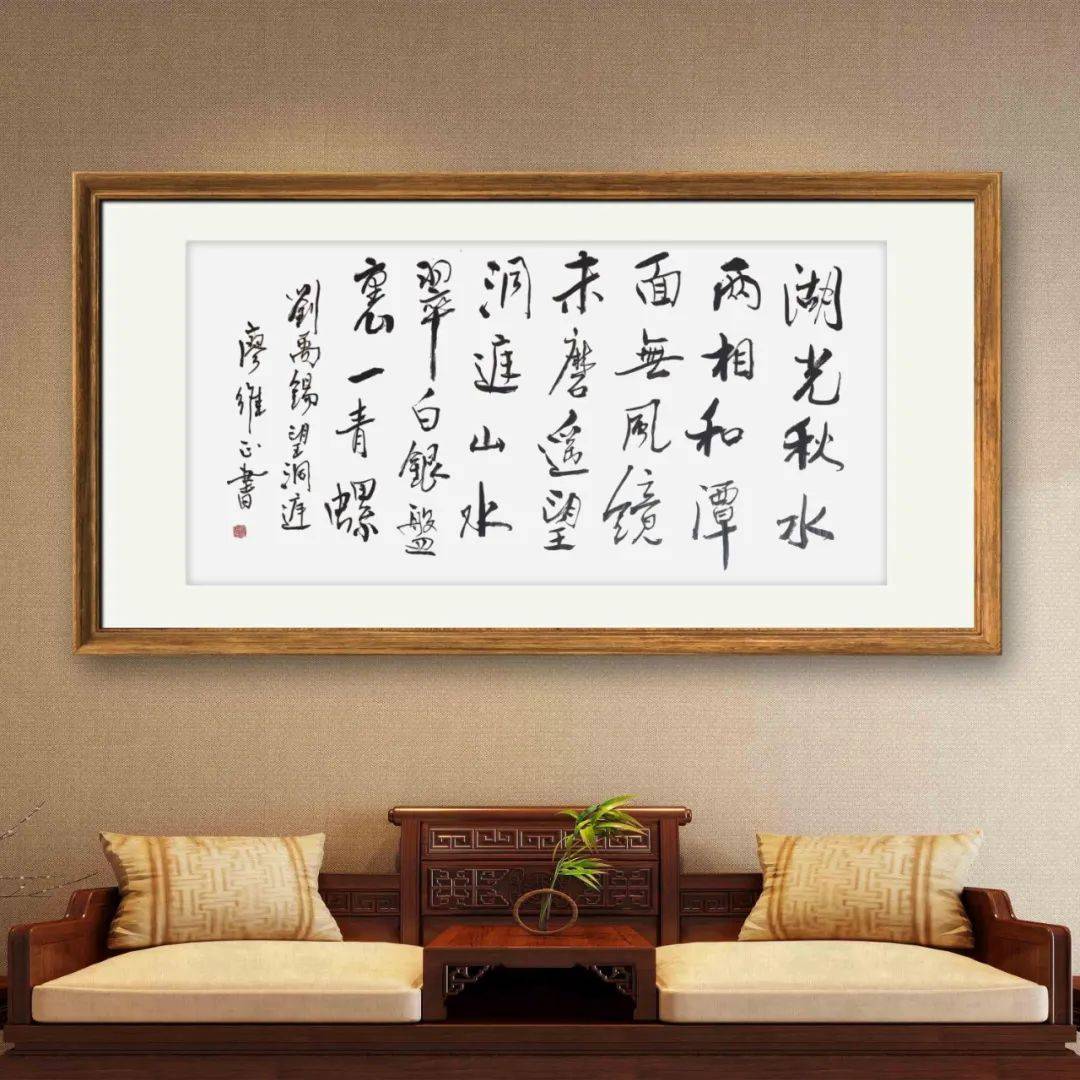 湖光秋水
兩相和潭
面無風鏡
未磨遥望
洞庭山水
翠白銀盤
裏一青螺
劉禹錫望洞庭
廖維正書